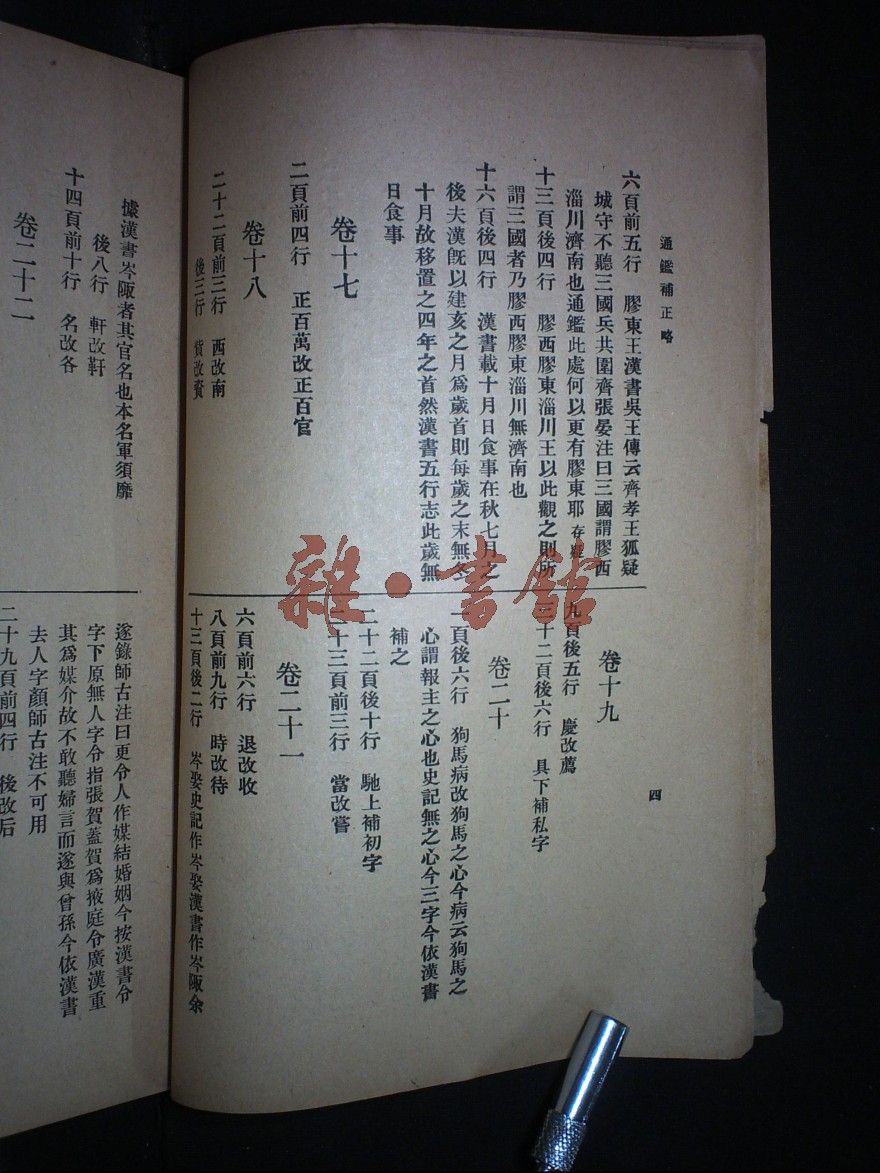 通鑑補正略
六頁前五行　膠東王漢書吳王傳云齊孝王狐疑
城守不聽三國兵共圍齊張晏注曰三國謂膠西
淄川濟南也通鑑此處何以更有膠東耶存疑
十三頁後四行　膠西膠東淄川王以此觀之則所
謂三國者乃膠西膠東淄川無濟南也
十六頁後四行　漢書載十月日食事在秋七月之
後夫漢既以建亥之月爲歲首則每歲之末無冬
十月故移置之四年之首然漢書五行志此歲無
日食事
卷十七
二頁前四行　正百萬改正百官
卷十八
二十二頁前三行　西改南
後三行　貨改賫
卷十九
九頁後五行　慶改薦
二十二頁後六行　具下補私字
卷二十
頁後六行　狗馬病改狗馬之心今病云狗馬之
心謂報主之心也史記無之心今三字今依漢書
補之
二十二頁後十行　馳上補初字
二十三頁前三行　當改嘗
卷二十一
六頁前六行　退改收
八頁前九行　時改待
十三頁後二行　岑娶史記作岑娶漢書作岑陬余
四
據漢書岑陬者其官名也本名軍須靡
後八行　軒改靬
十四頁前十行　名改各
卷二十二
遂錄師古注曰更令人作媒結婚姻今按漢書令
字下原無人字令指張賀蓋賀爲掖庭令廣漢重
其爲媒介故不敢聽婦言而遂與曾孫今依漢書
去人字顏師古注不可用
二十九頁前四行　後改后
雜·書館